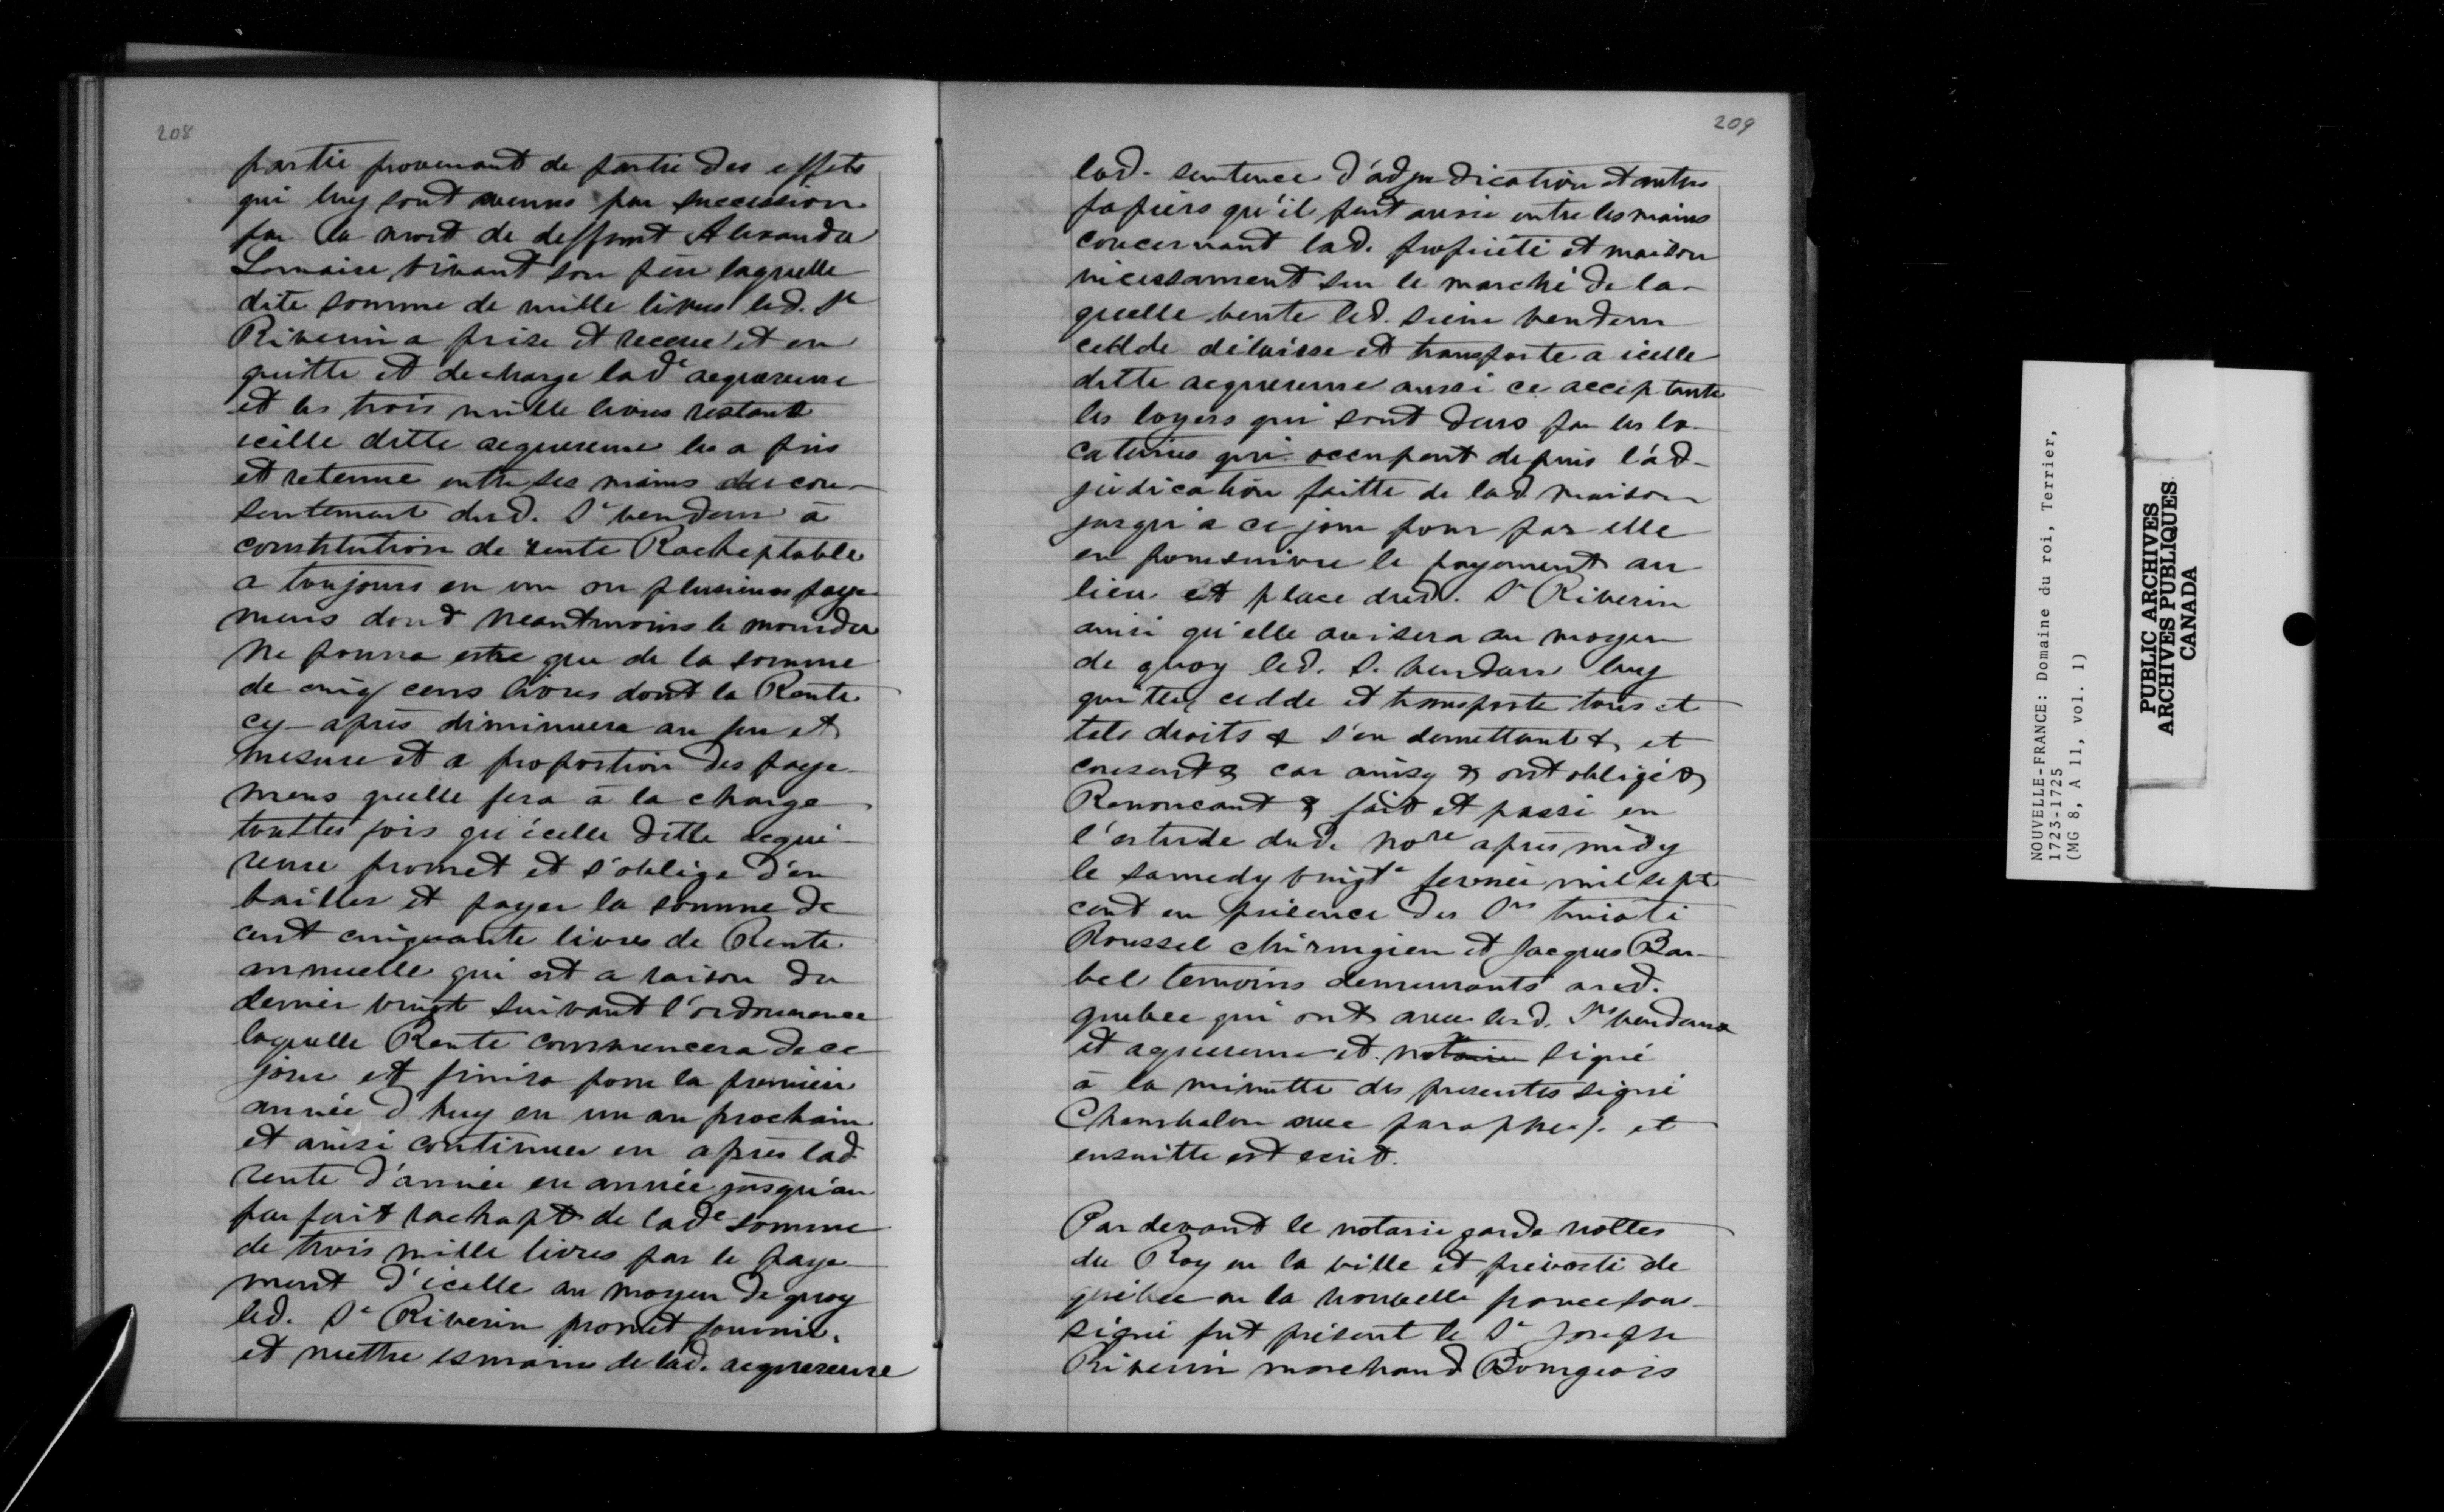 208
partie provenant de partie des effets
qui luy sont avenus par succession
par la mort de deffunt Alexandre
Lemaire vivant son père laquelle
dite somme de mille livres led. Sr
Riverin a prise et receue et en
quitte et decharge lade acquereuse
et les trois mille livres restant
icelle ditte acquereuse les a pris
et retenue entre ses mains du con-
sentement dud. Sr vendeur à
constitution de rente Racheptable
a toujours en un ou plusieurs paye-
mens dont neantmoins le moindre
ne pourra estre que de la somme
de cinq cens livres dont la Rente
cy-après diminuera au fur et
mesure et a proportion des paye-
mens quelle fera à la charge
touttes fois qu'icelle ditte acque-
reuse promet et s'oblige d'en
bailler et payer la somme de
cent cinquante livres de Rente
annuelle qui est a raison du
denier vingt suivant l'ordonnance
laquelle Rente commencera de ce
jour et finira pour la premiere
année d'huy en un an prochain
et ainsi continuer en après lad
rente d'année en année jusqu'au
parfait rachapt de lade somme
de trois mille livres par le paye-
ment d'icelle au moyen de quoy
led. Sr Riverin promet fournir
et mettre es mains de lad. acquereuse
209
lad. sentence d'adjudication et autres
papiers qu'il peut avoir entre les mains
concernant lad. propriété et maison
necessament sur le marché de la-
quelle vente led. sieur vendeur
cedde délaisse et transporte a icelle
ditte acquereuse aussi ce acceptante
les loyers qui sont deus par les lo-
cataires qui occupent depuis l'ad-
judication faitte de lad. maison
jusqu'a ce jour pour par elle
en poursuivre le payement au
lieu et place dud. Sr Riverin
ainsi qu'elle avisera au moyen
de quoy led. S. vendeur luy
quitte, cedde et transporte tous et
tels droits & s'en demettant & et
consent & car ainsy & ont obligé &
Renoncant & fait et passé en
l'estude dud. nore après midy
le samedy vingte fevrier mil sept
cent en présence des Srs timoté
Roussel chirurgien et Jacques Bar-
bel temoins demeurants aud.
quebec qui ont avec lesd. Srs vendeur
et aquereuse et notaire signé
à la minutte des presentes signé
Chambalon avec paraphe/. et
ensuitte est ecrit.
Par devant le notaire garde nottes
du Roy en la ville et prévosté de
quebec en la nouvelle france sou-
signé fut présent le Sr Joseph
Riverin marchand Bourgeois
NOUVELLE-FRANCE: Domaine du roi, Terrier,
1723-1725
(MG 8, A 11, vol. 1)
PUBLIC ARCHIVES
ARCHIVES PUBLIQUES
CANADA